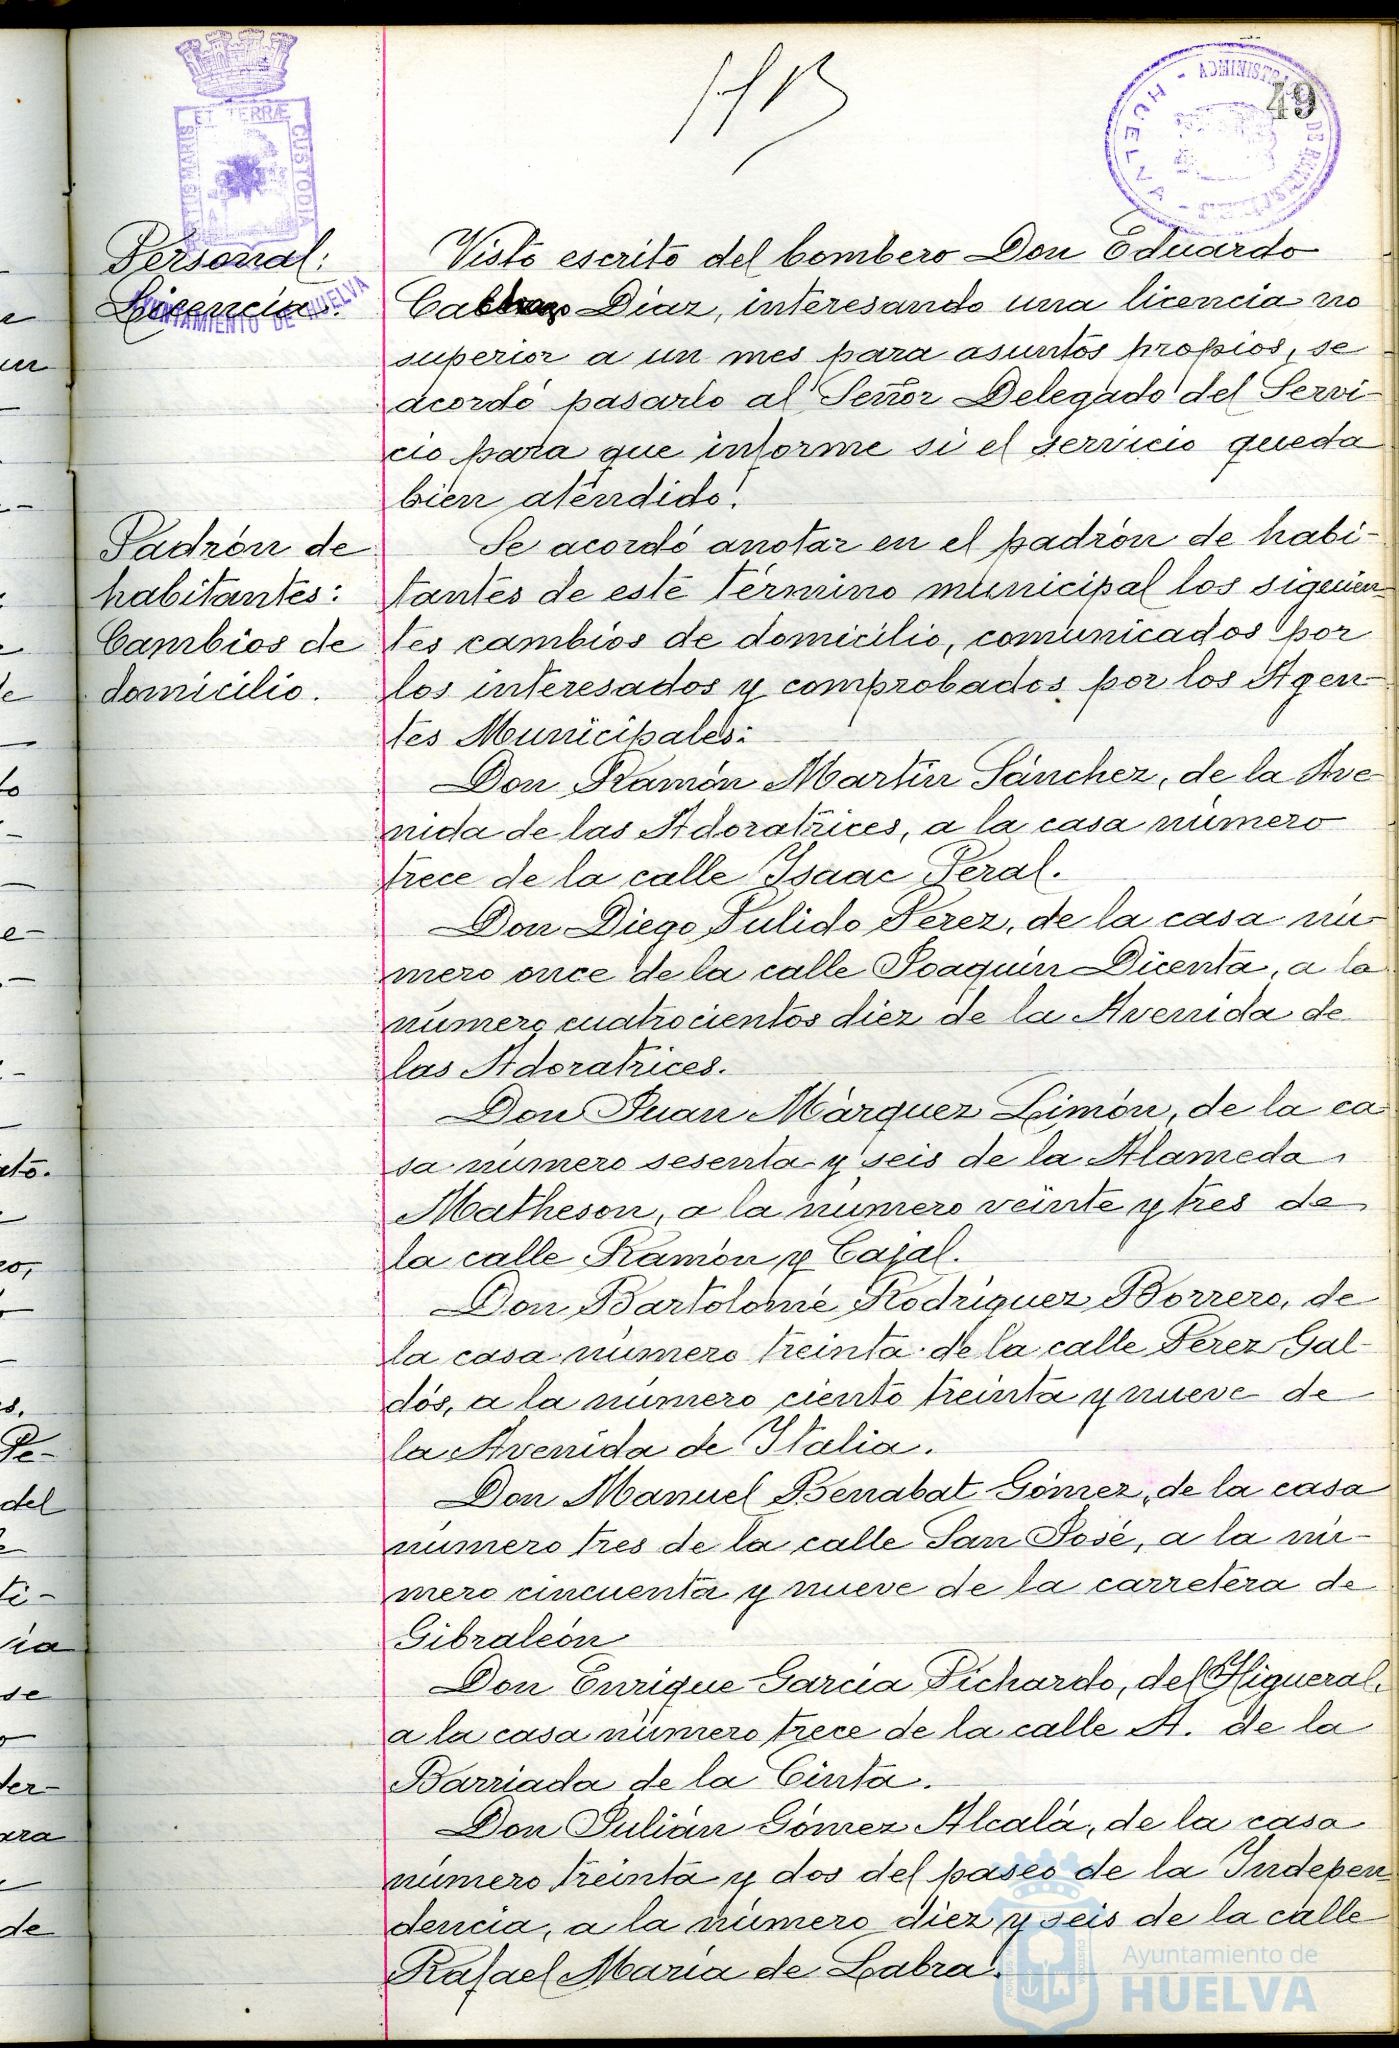 49
Personal:
Licencia:
Visto escrito del bombero Don Eduardo
Diaz, interesando una licencia no
superior a un mes para asuntos propios, se
acordó pasarlo al Señor Delegado del Servi-
cio para que informe si el servicio queda
bien atendido.
Padrón de
habitantes:
Cambios de
domicilio.
Se acordó anotar en el padrón de habi-
tantes de este término municipal los siguien-
tes cambios de domicilio, comunicados por
los interesados y comprobados por los Agen-
tes Municipales:
Don Ramón Martín Sánchez, de la Ave
nida de las Adoratrices, a la casa número
trece de la calle Isaac Peral.
Don Diego Pulido Perez, de la casa nú-
mero once de la calle Joaquín Dicenta, a la
número cuatrocientos diez de la Avenida de
las Adoratrices.
Don Juan Márquez Limón, de la ca
sa número sesenta y seis de la Alameda
Matheson, a la número veinte y tres de
la calle Ramón y Cajal.
Don Bartolomé Rodríguez Borrero, de
la casa número treinta de la calle Perez Gal-
dós, a la número ciento treinta y nueve de
la Avenida de Italia.
Don Manuel Benabat Gómez, de la casa
número tres de la calle San José, a la nú-
mero cincuenta y nueve de la carretera de
Gibraleón
Don Enrique García Pichardo, del Higueral,
a la casa número trece de la calle A. de la
Barriada de la Cinta.
Don Julián Gómez Alcalá, de la casa
número treinta y dos del paseo de la Indepen
dencia, a la número diez y seis de la calle
Rafael María de Labra.
AYUNTAMIENTO DE HUELVA
ET TERRÆ CUSTODIA
HUELVA
Ayuntamiento de
HUELVA